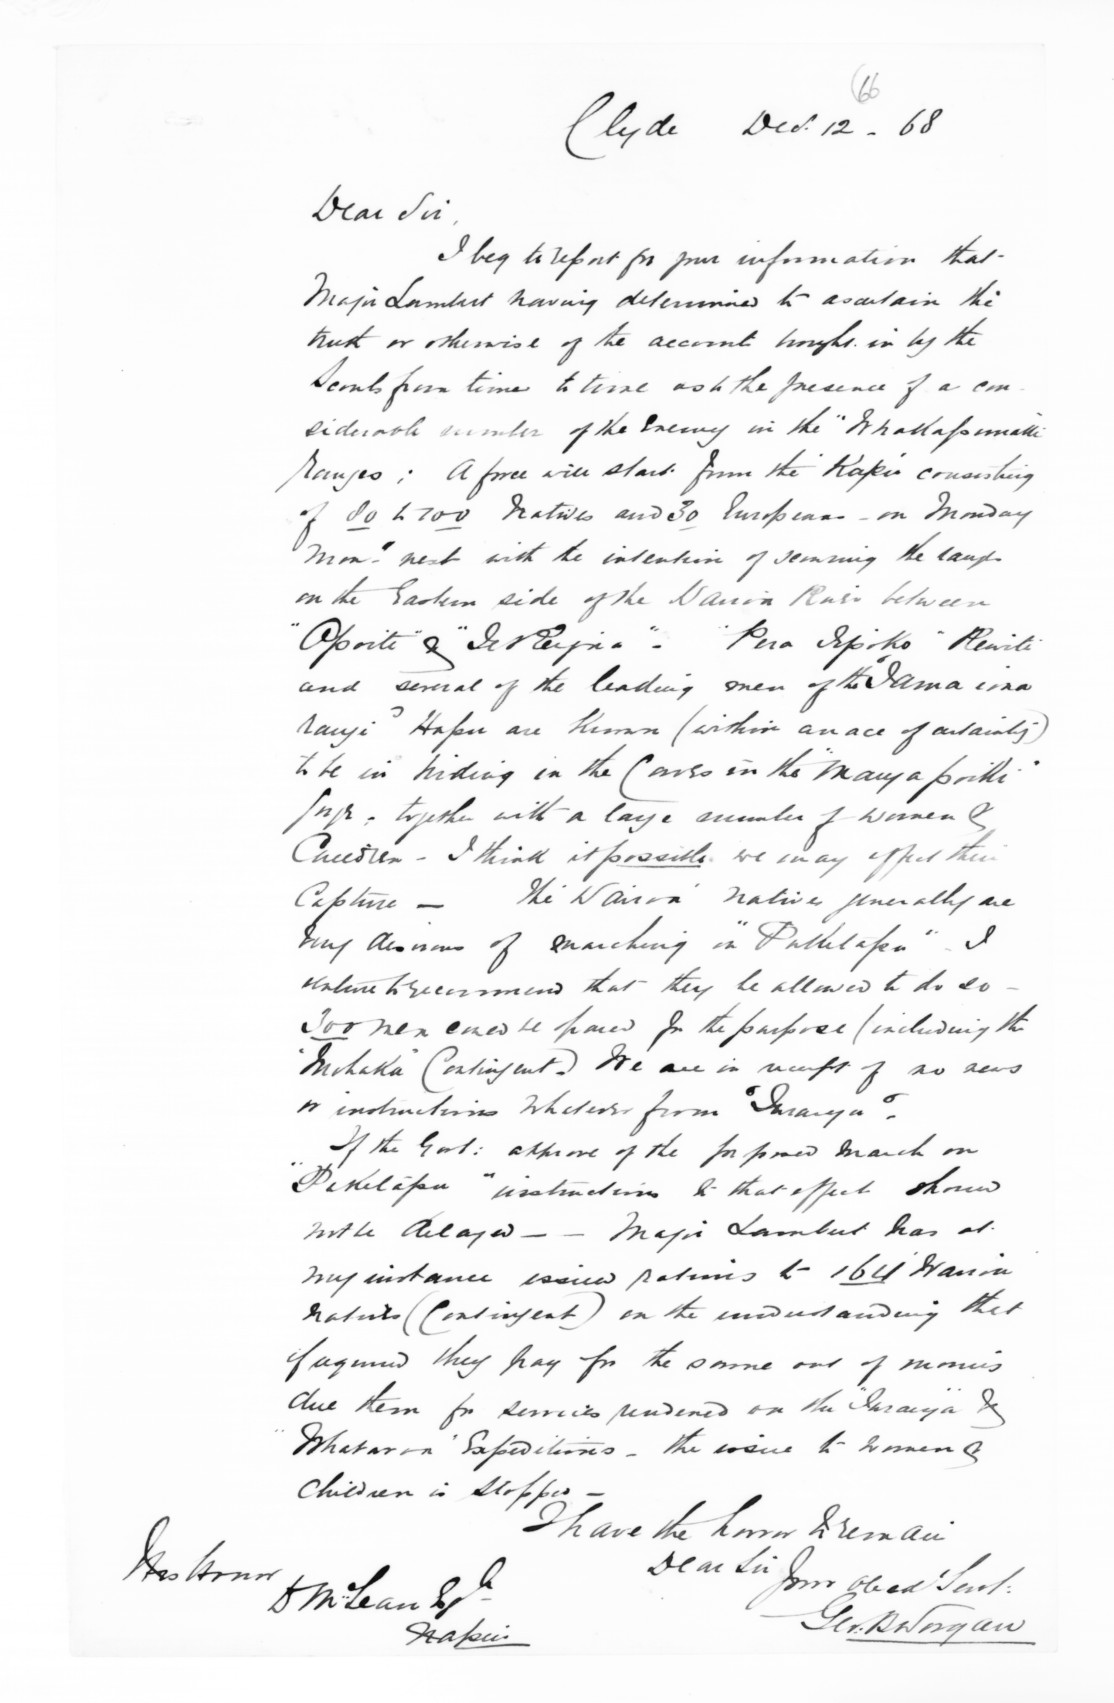 66
Clyde Decr. 12 - 68
Dear Sir,
I beg to report for your information that
Major Lambert having determined to ascertain the
truth or otherwise of the account brought in by the
Scouts from time to time as to the presence of a con-
siderable number of the Enemy in the "Whakapunaki
Ranges; A force will start from the Kapu consisting
of 80 to 100 Natives and 30 Europeans - on Monday
Morn.g next with the intention of scouring the
on the Eastern side of the Wairoa River between
"Opoiti" & "Te Reinga" - "Pera Tipoko" Rewiti
and several of the leading men of the "Tama iona
rangi" Hapu are known (within an ace of certainty)
to be in hiding in the Caves in the "Mangapoiki"
gorge, together with a large number of women &
Children - I think it possible we may effect their
Capture — The Wairoa natives generally are
very desirous of marching on "Puketapu" - I
venture to recommend that they be allowed to do so -
300 men could be spared for the purpose (including the
"Mohaka" Contingent.) We are in receipt of no news
or instructions whatever from "Turanga".
If the Govt: approve of the proposed march on
"Puketapu" instructions to that effect should
not be delayed — — Major Lambert has at
my instance issued rations to 164 Wairoa
Natives (Contingent) on the understanding that
if required they pay for the same out of monies
due them for services rendered on the "Turanga" &
"Whataroa" Expeditions - the issue to women &
children is stopped -
I have the honor to remain
Dear Sir
Your Obedt Servt:
Geo. B Worgan
His Honor
D McLean Esqr
Napier